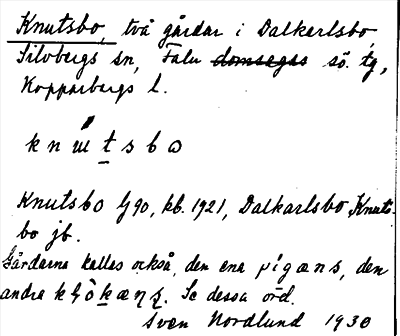 Knutsbo, två gårdar i Dalkarlsbo,
Silvbergs sn, Falu domsagas sö. tg,
Kopparbergs l.
k n ɯ t s b ω
Knutsbo 1/4 90, kb. 1921, Dalkarlsbo, Knuts-
bo jb.
Gårdarna kallas också, den ena pigæns, den
andra Se dessa ord.
Sven Nordlund 1930